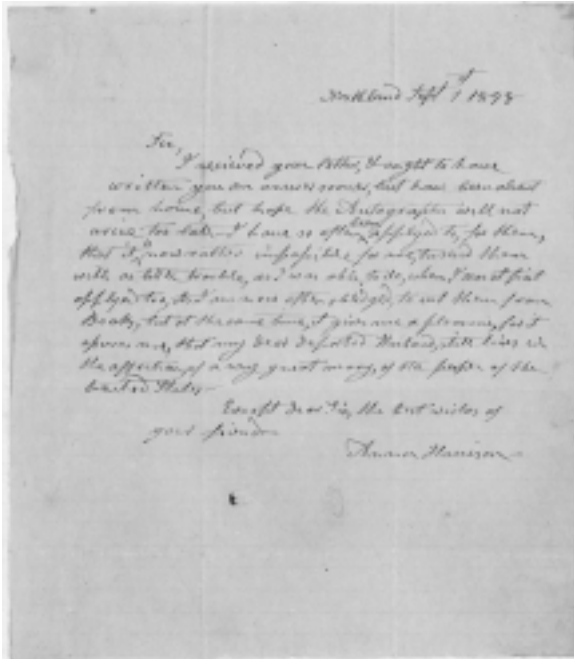 Sept 1st 1848
Sir,
I recieved your letter, & ought to have
written you an answer sooner, but have been absent
from home, but hope the Autographs will not
arive too late – I have so often been applyed to, for them,
that it now rather impossible for me, to send them
with as little trouble, as I was able to do, when I was at first
applyed too, as I am now often obliged, to cut them from
Books, but at the same time, it gives me a pleasure, for it
me, that my dear departed Husband, still lives in
the affection, of a very great many, of the people of the
United States –
Except dear Sir, the best wishes of
your friend –
Anna Harrison –